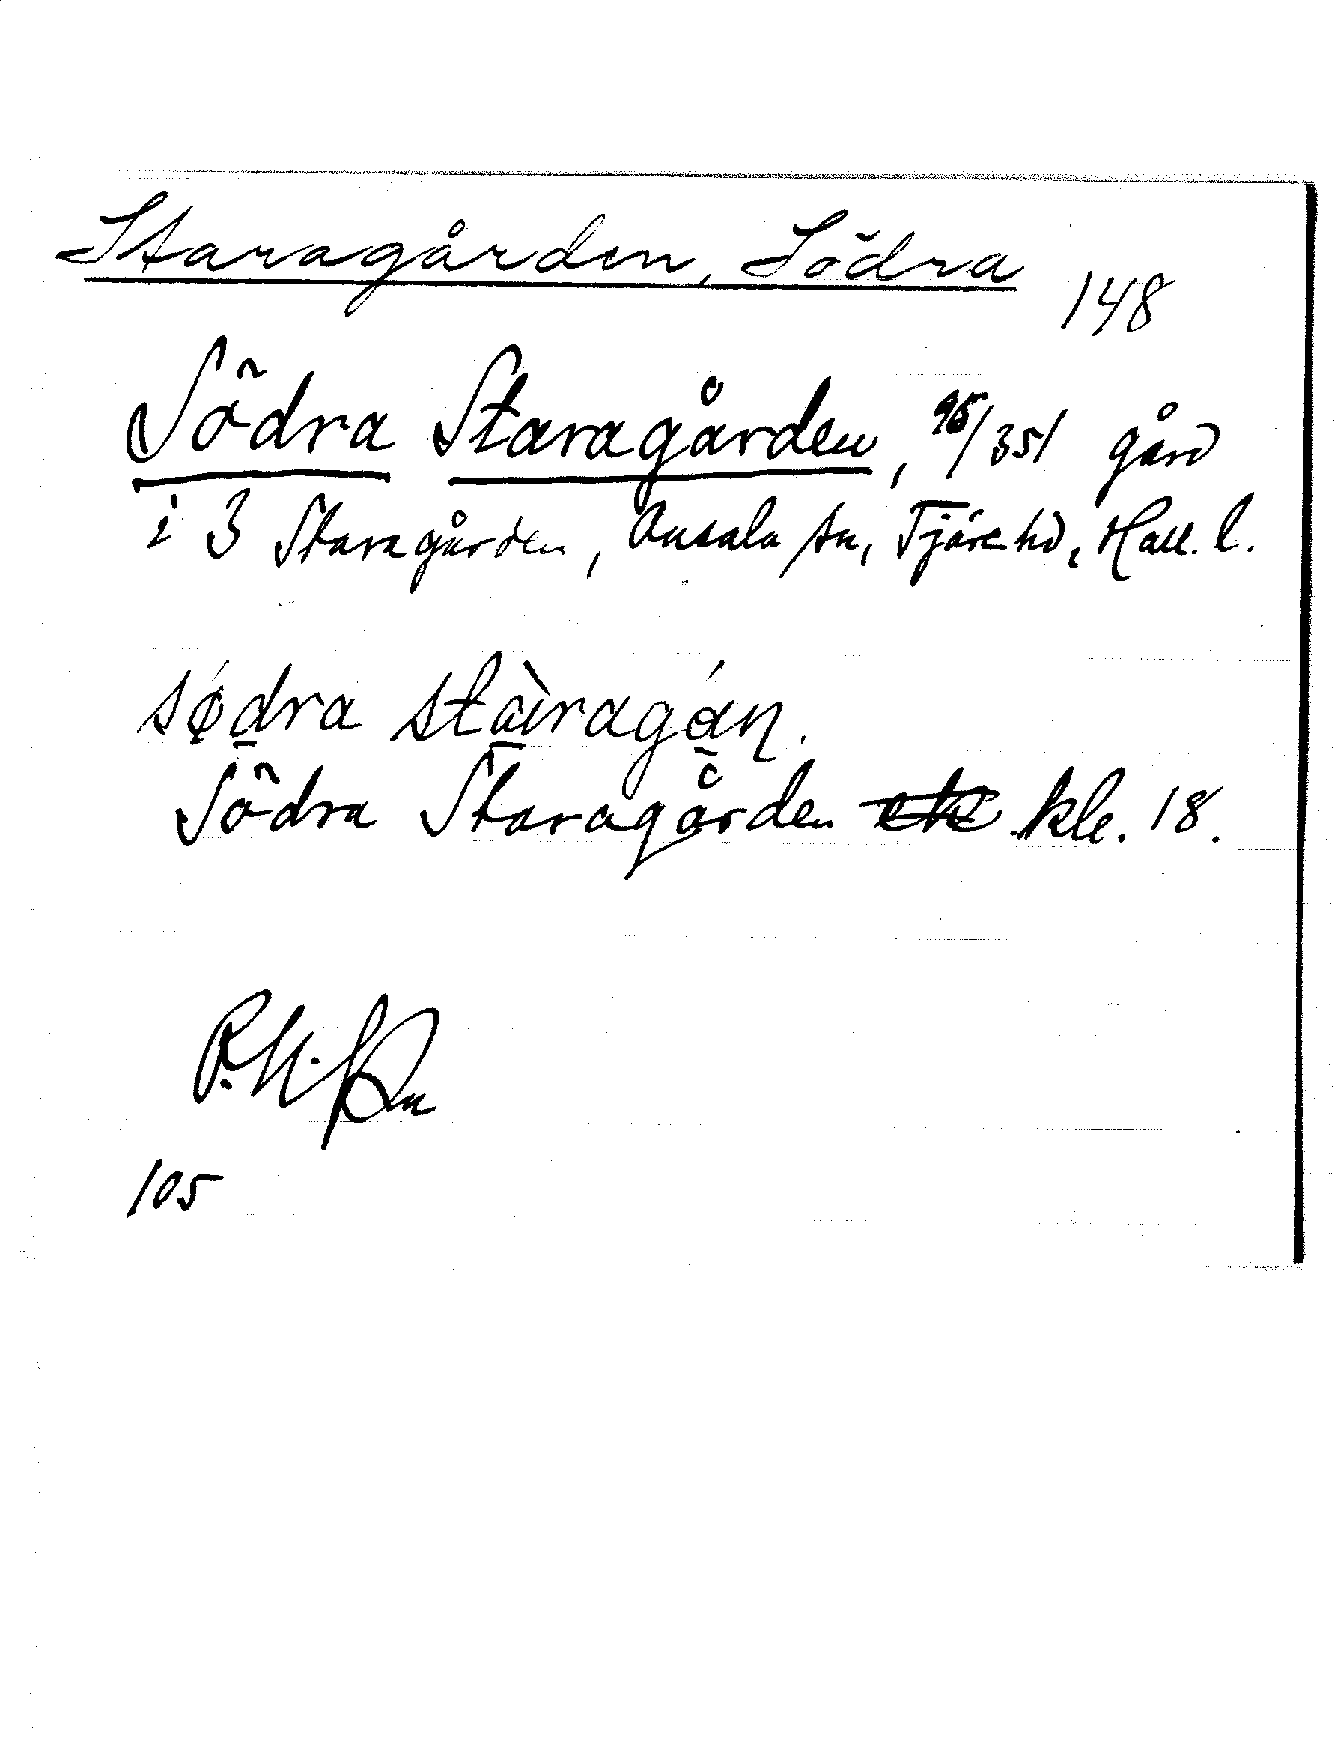 Staragården, Södra
148
Södra Staragården, 95/351 gård
i 3 Staragården, Onsala sn, Fjäre hd, Hall. l.
södra stàragán.
Södra Staragården kle. 18.
105